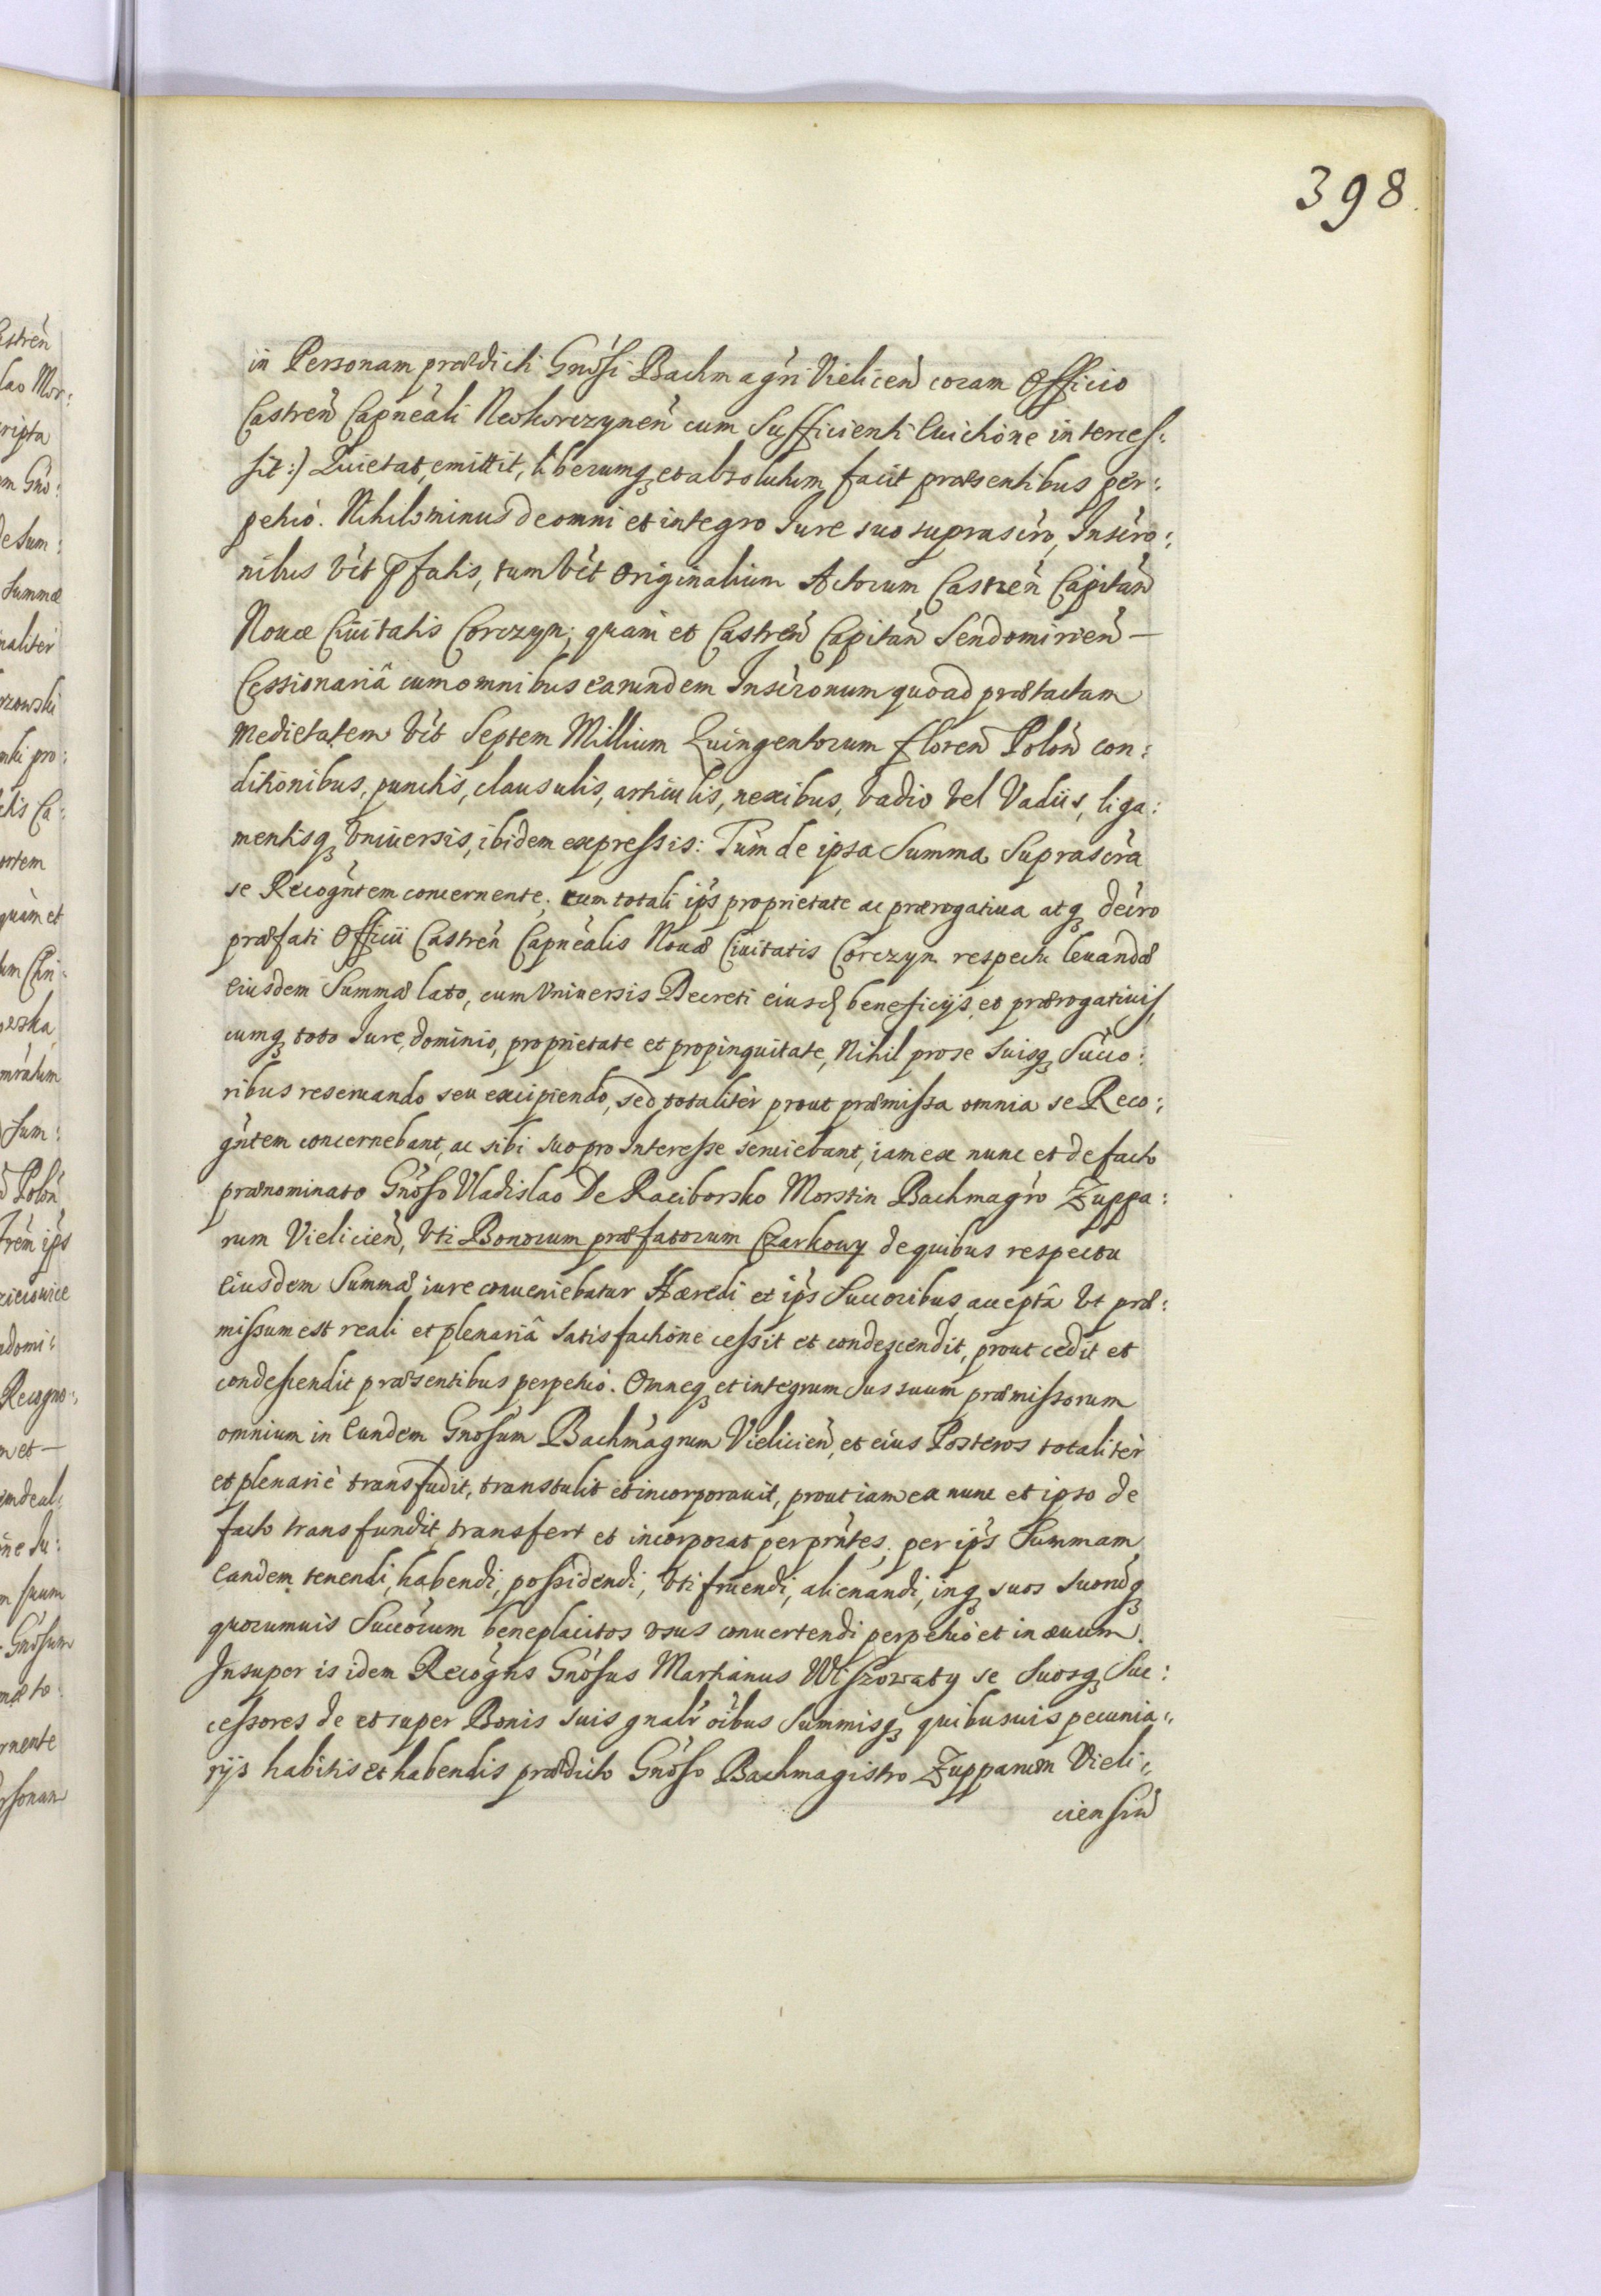 398
in Personam prædicti Gnósi Bachmagri Vielicen̄ coram Officio
Castren̄ Capneali Neokorczynen̄ cum Sufficienti Euictione interces:
sit:) Quietat, emittit, liberumq; et absolutum facit præsentibus per:
petuò. Nihilominus de omni et integro Iure suo suprascro, Inscro:
nibus vti pfatis, tum vti Originalium Actorum Castren̄ Capitan̄
Nouæ Ciuitatis Corczyn; quam et Castren̄ Capitan̄ Sendomirien̄ —
Cessionariâ cum omnibus earundem Inscronum quoad prætactam
medietatem vti Septem Millium Quingentorum floren̄ Polon̄ con:
ditionibus, punctis, clausulis, articulis, nexibus, vadio vel Vadiis, liga:
mentisq; Vniuersis, ibidem expressis: Tum de ipsa Summa Suprascra
se Recogntem concernente; cum totali ips proprietate ac prærogatiua atq; decro
præfati Officii Castren̄ Capnealis Nouæ Ciuitatis Corczyn respectu leuandæ
eiusdem Summæ lato, cum Vniuersis Decreti eiusd beneficijs, et prærogatiuis,
cumq; toto Iure, dominio, proprietate et propinquitate, Nihil pro se suisq; Succo:
ribus reseruando seu excipiendo, sed totaliter prout præmissa omnia se Reco:
gntem concernebant, ac sibi suo pro Interesse seruiebant, iam ex nunc et de facto
prænominato Gnóso Vladislao De Raciborsko Morstin Bachmagro Zuppa:
rum Vielicien̄, Vti Bonorum præfatorum Czarkowy de quibus respectu
eiusdem Summæ iure conueniebatur Hæredi et ips Succoribus, acceptâ Vt præ:
missum est reali et plenariâ satisfactione cessit et condescendit, prout cedit et
condescendit præsentibus perpetuò. Omneq; et integrum Ius suum præmissorum
omnium in Eundem Gnosum Bachmagrum Vielicien̄, et eius Posteros totalitèr
et plenariè transfudit, transtulit et incorporauit, prout iam ex nunc et ipso de
facto transfundit, transfert et incorporat per prntes; per ips Summam
Eandem tenendi, habendi, possidendi, vti fruendi, alienandi, inq; suos suorūq;
quorumuis Succorum beneplacitos vsus conuertendi perpetuò et in æuum.
Insuper is idem Recogns Gnósus Martianus Wiszowaty se Suosq; Suc:
cessores de et super Bonis suis gnalr oibus Summisq; quibusuis pecunia:
rijs habitis et habendis prædicto Gnóso Bachmagistro Zupparum Vieli:
ciensiū